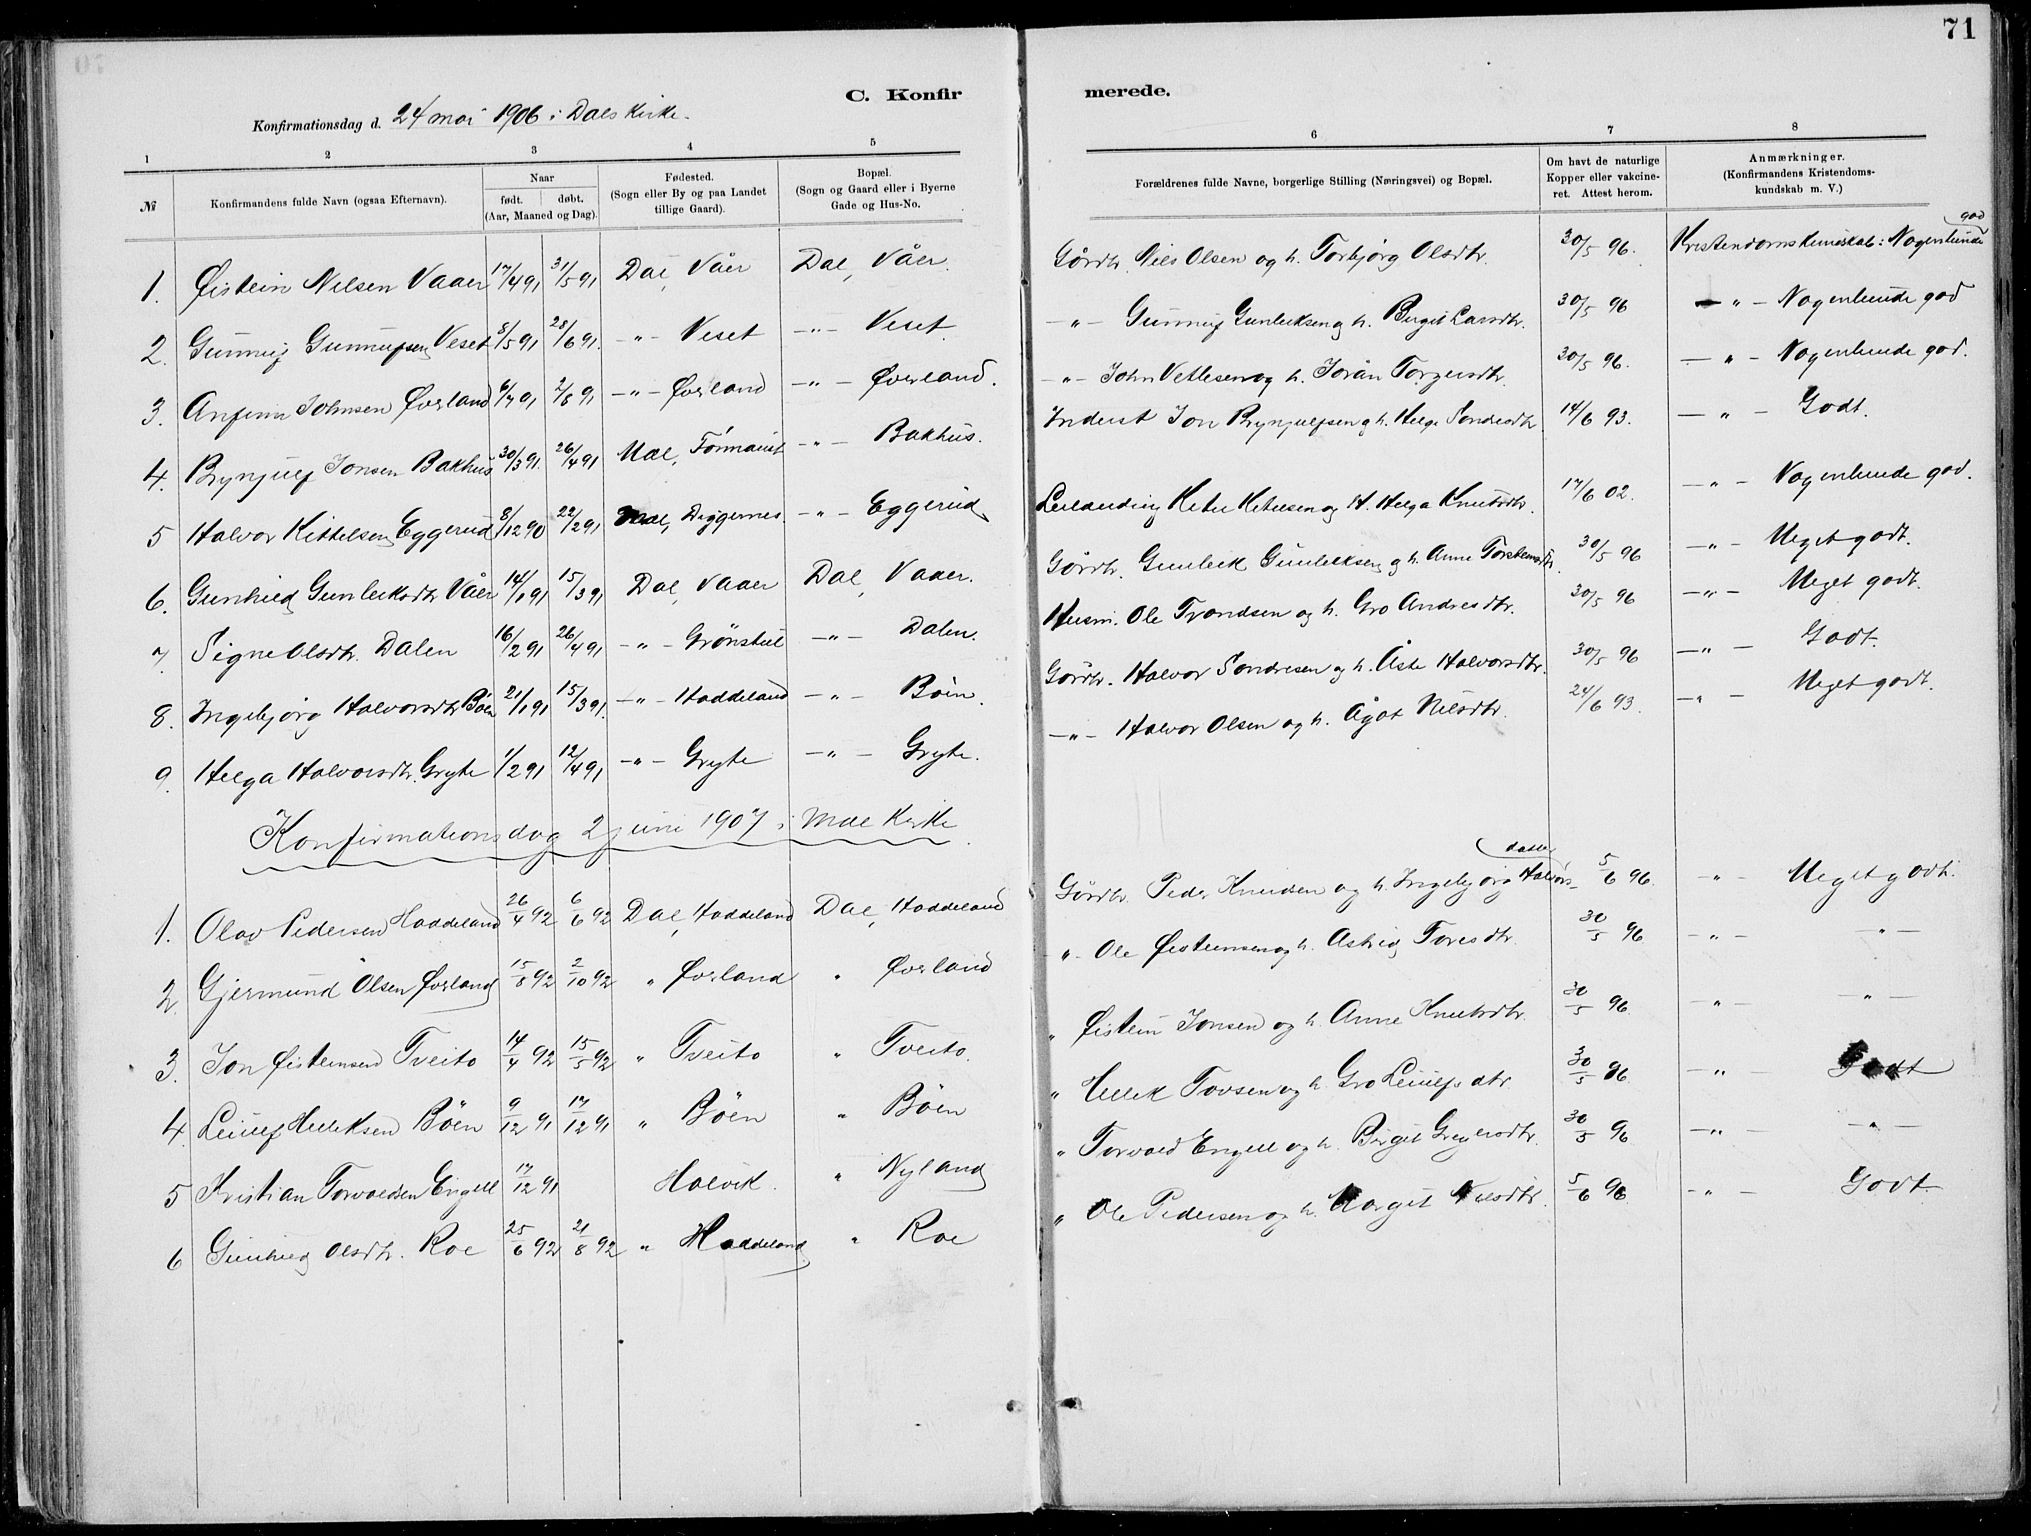 71
C. Konfirmerede.
Konfirmationsdag d. 24 mai 1906 i Dals Kirke.
1 2 3 4 5 6 7 8
№ Konfirmandens fulde Navn (ogsaa Efternavn). Naar født. døbt. (Aar, Maaned og Dag). Fødested. (Sogn eller By og paa Landet tillige Gaard). Bopæl. (Sogn og Gaard eller i Byerne Gade og Hus-No. Forældrenes fulde Navne, borgerlige Stilling (Næringsvei) og Bopæl. Om havt de naturlige Kopper eller vakcineret. Attest herom. Anmærkninger. (Konfirmandens Kristendomskundskab m. V.)
1. Øistein Nilsen Vaaer 17/4 91 31/5 91 Dal, Våer Dal, Våer. Gårdbr. Nils Olsen og h. Torbjørg Olsdtr. 30/5 96. Kristendomskundskab: Nogenlunde god
2. Gunnuf Gunnufsen Veset 8/5 91 28/6 91. -"- Veset -"- Veset. -"- Gunnuf Gunleiksen og h. Birgit Larsdtr. 30/5 96 -"- Nogenlunde god
3. Anfinn Johnsen Øverland 6/7 91 2/8 91 -"- Øverland -"- Øverland. -"- John Vetlesen og h. Jorån Torgersdtr. 30/5 96. -"- Nogenlunde god.
4. Brynjulf Jonsen Bakhus 30/3 91. 26/4 91 Mæl, -"- Bakhus. Inderst Jon Brynjulfsen og h. Helge Sondresdtr 14/6 93. -"- Godt.
5 Halvor Kittelsen Eggerud 8/12 90 22/2 91 Mæl, Diggernes. -"- Eggerud Leilending og H. Helga Knutsdtr. 17/6 02. -"- Nogenlunde god.
6. Gunhild Gunleiksdtr Våer 14/1 91 15/3 91 Dal, Vaaer Dal, Vaaer. Gårdbr. Gunleik Gunleiksen og h. Anne Torsteinsdtr. 30/5 96 -"- Meget godt.
7 Signe Olsdtr. Dalen 16/2 91 26/4 91 -"- Grönstul -"- Dalen. Husm. Ole Trondsen og h. Gro Andresdtr. 30/5 96 -"- Meget godt.
8. Ingebjørg Halvorsdtr Böen 21/1 91 15/3 91. -"- Haddeland -"- Böen. Gårdbr. Halvor Sondresen og h. Åste Halvorsdtr. 30/5 96 -"- Godt.
9. Helga Halvorsdtr. Gryte 1/2 91 12/4 91 -"- Gryte -"- Gryte. -"- Halvor Olsen og h. Ågot Nilsdtr. 24/6 93. -"- Meget godt.
Konfirmationsdag 2 juni 1907 i Mæl Kirke.
1. Olav Pedersen Haddeland 26/4 92 6/6 92 Dal, Haddeland Dal, Haddeland Gårdbr. Peder Knudsen og h. Ingebjørg Halvorsdatter 5/6 96. -"- Meget godt.
2 Gjermund Olsen Øverland 15/8 92 2/10 92 " Øverland " Øverland -"- Ole Øisteinsen og h. Astrig Toresdtr. 30/5 96 -"- -"-
3. Jon Øisteinsen Tveito 14/4 92 15/5 92 " Tveito " Tveito. " Øistein Jonsen og h. Anne Knutsdtr. 30/5 96 -"- -"-
4 Leiulf Helleksen Böen 9/12 91 17/12 91 " Böen " Böen " Hellek Tovsen og h. Gro Leiulfsdtr 30/5 96 -"- Godt
5 Kristian Torvaldsen Engell 17/12 91 Holvik. " Nyland " Torvald Engell og h. Birgit Gregersdtr. 30/5 96 -"- -"-
6 Gunhild Olsdtr. Roe 25/6 92 21/8 92 " Haddeland " Roe " Ole Pedersen og h. Margit Nilsdtr. 5/6 96 -"- Godt.